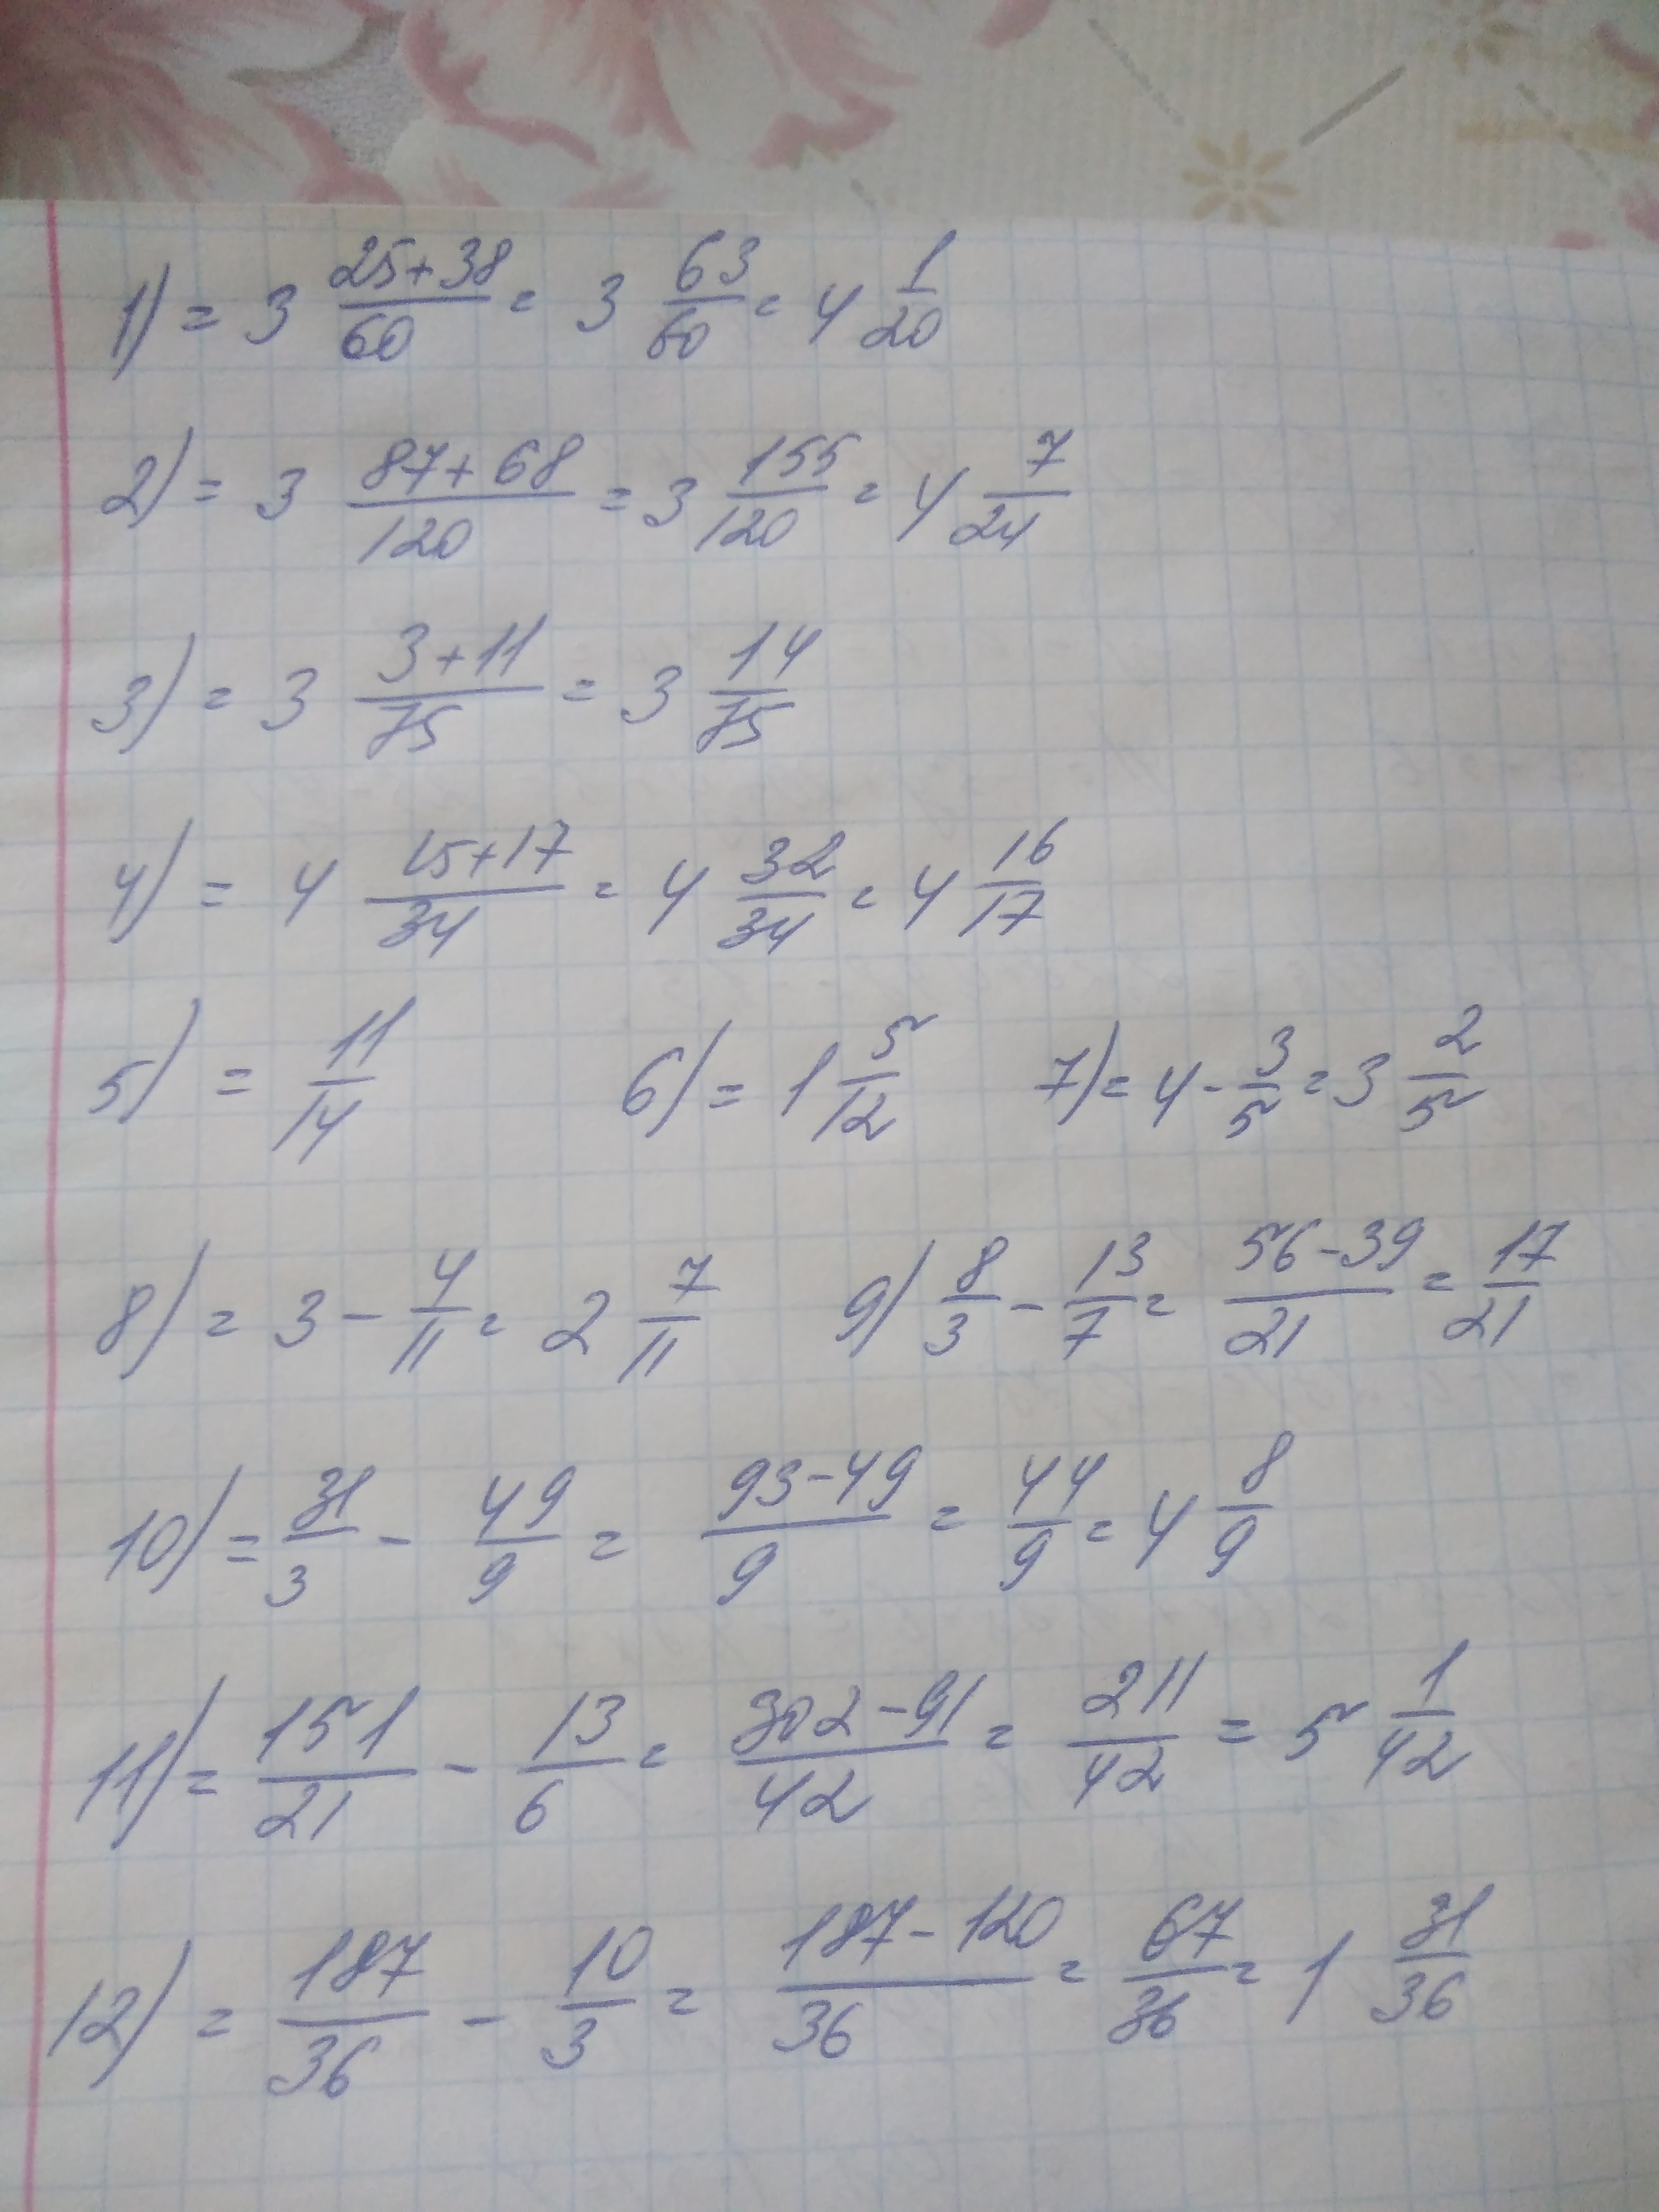 1) = 3 25+38/60 = 3 63/60 = 4 1/20
2) = 3 87+68/120 = 3 155/120 = 4 7/24
3) = 3 3+11/75 = 3 14/75
4) = 4 15+17/34 = 4 32/34 = 4 16/17
5) = 11/14 6) = 1 5/12 7) = 4 - 3/5 = 3 2/5
8) = 3 - 4/11 = 2 7/11 9) 8/3 - 13/7 = 56-39/21 = 17/21
10) = 31/3 - 49/9 = 93-49/9 = 44/9 = 4 8/9
11) = 151/21 - 13/6 = 302-91/42 = 211/42 = 5 1/42
12) = 187/36 - 10/3 = 187-120/36 = 67/36 = 1 31/36